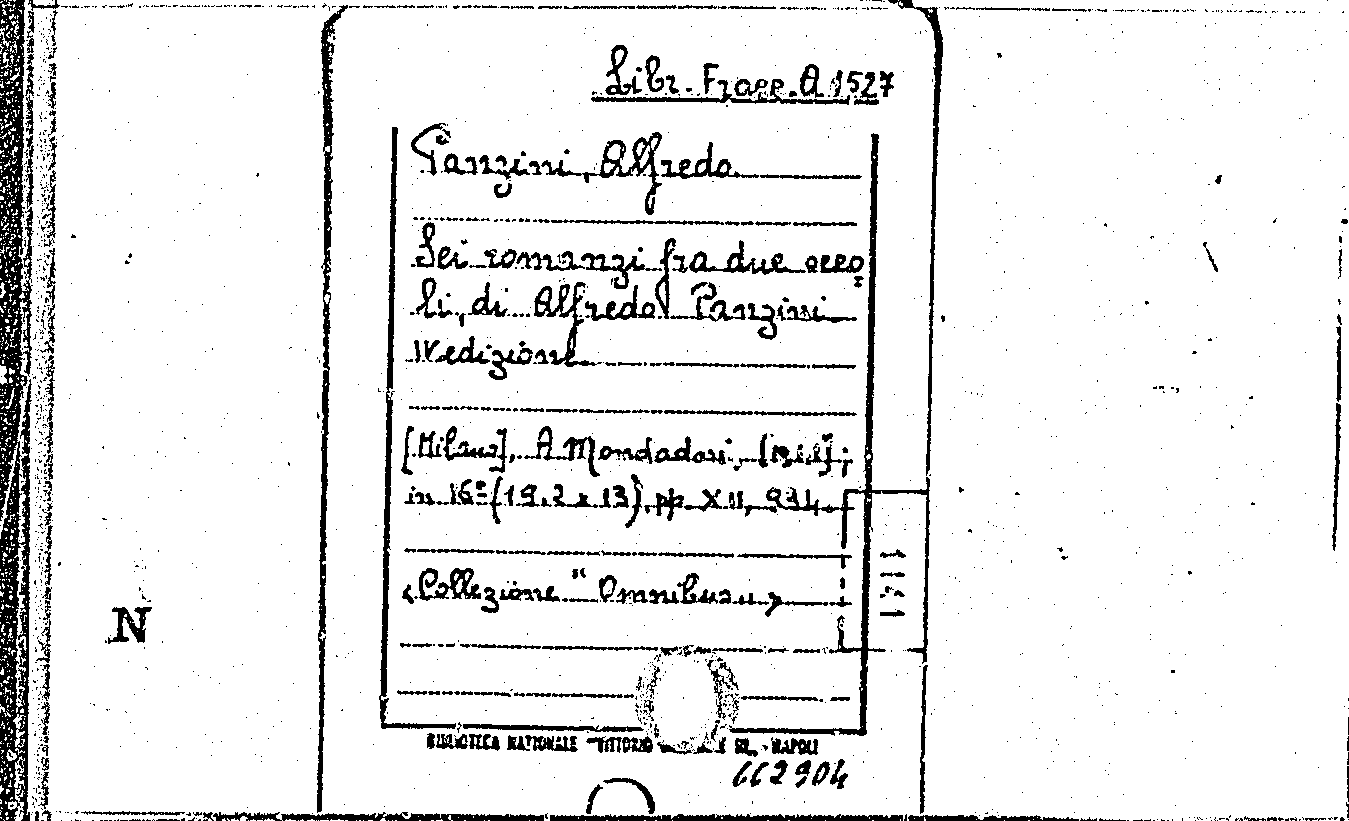 Libr. Frapp. A 1527
Panzini, Alfredo
Sei romanzi fra due seco=
li, di Alfredo Panzini
IV edizione
[Milano], A. Mondadori,
in 16° (19.2 x 13), pp. XII, 934.
1141
«Collezione "Omnibus"»
N
BIBLIOTECA NATIONALE "VITTORIO E III" - NAPOLI
662904